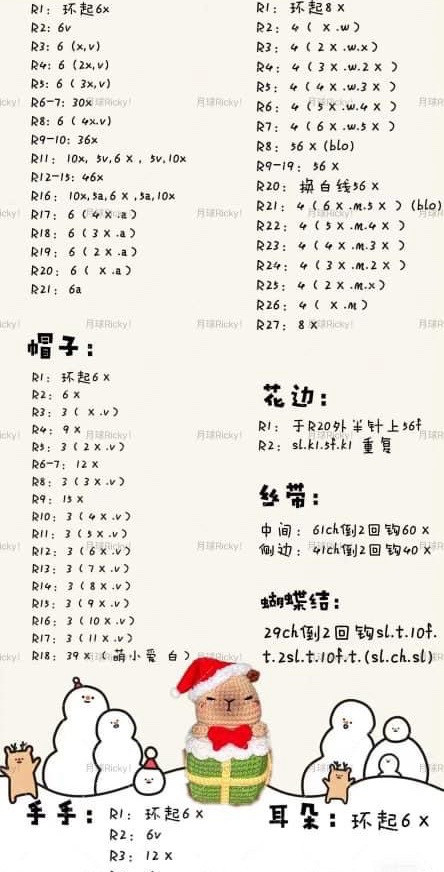 R1: 环起6x
R2: 6v
R3: 6 (x,v)
R4: 6 (2x,v)
R5: 6 ( 3x,v)
R6-7: 30x
R8: 6 ( 4x.v)
R9-10: 36x
R11: 10x, 5v,6 x , 5v,10x
R12-15: 46x
R16: 10x,5a,6 x ,5a,10x
R17: 6 ( 4 x .a )
R18: 6 ( 3 x .a )
R19: 6 ( 2 x .a )
R20: 6 ( x .a )
R21: 6a
帽子:
R1: 环起6 x
R2: 6 x
R3: 3 ( x .v )
R4: 9 x
R5: 3 ( 2 x .v )
R6-7: 12 x
R8: 3 ( 3 x .v )
R9: 15 x
R10: 3 ( 4 x .v )
R11: 3 ( 5 x .v )
R12: 3 ( 6 x .v )
R13: 3 ( 7 x .v )
R14: 3 ( 8 x .v )
R15: 3 ( 9 x .v )
R16: 3 ( 10 x .v )
R17: 3 ( 11 x .v )
R18: 39 x ( 萌小爱 白 )
R1: 环起8 x
R2: 4 ( x .w )
R3: 4 ( 2 x .w.x )
R4: 4 ( 3 x .w.2 x )
R5: 4 ( 4 x .w.3 x )
R6: 4 ( 5 x .w.4 x )
R7: 4 ( 6 x .w.5 x )
R8: 56 x (blo)
R9-19: 56 x
R20: 换白线56 x
R21: 4 ( 6 x .m.5 x ) (blo)
R22: 4 ( 5 x .m.4 x )
R23: 4 ( 4 x .m.3 x )
R24: 4 ( 3 x .m.2 x )
R25: 4 ( 2 x .m.x )
R26: 4 ( x .m )
R27: 8 x
花边:
R1: 于R20外半针上56f
R2: sl.k1.5f.k1 重复
丝带:
中间: 61ch倒2回钩60 x
侧边: 41ch倒2回钩40 x
蝴蝶结:
29ch倒2回钩sl.t.10f.
t.2sl.t.10f.t.(sl.ch.sl)
手手:
R1: 环起6 x
R2: 6v
R3: 12 x
耳朵: 环起6 x
月球Ricky!